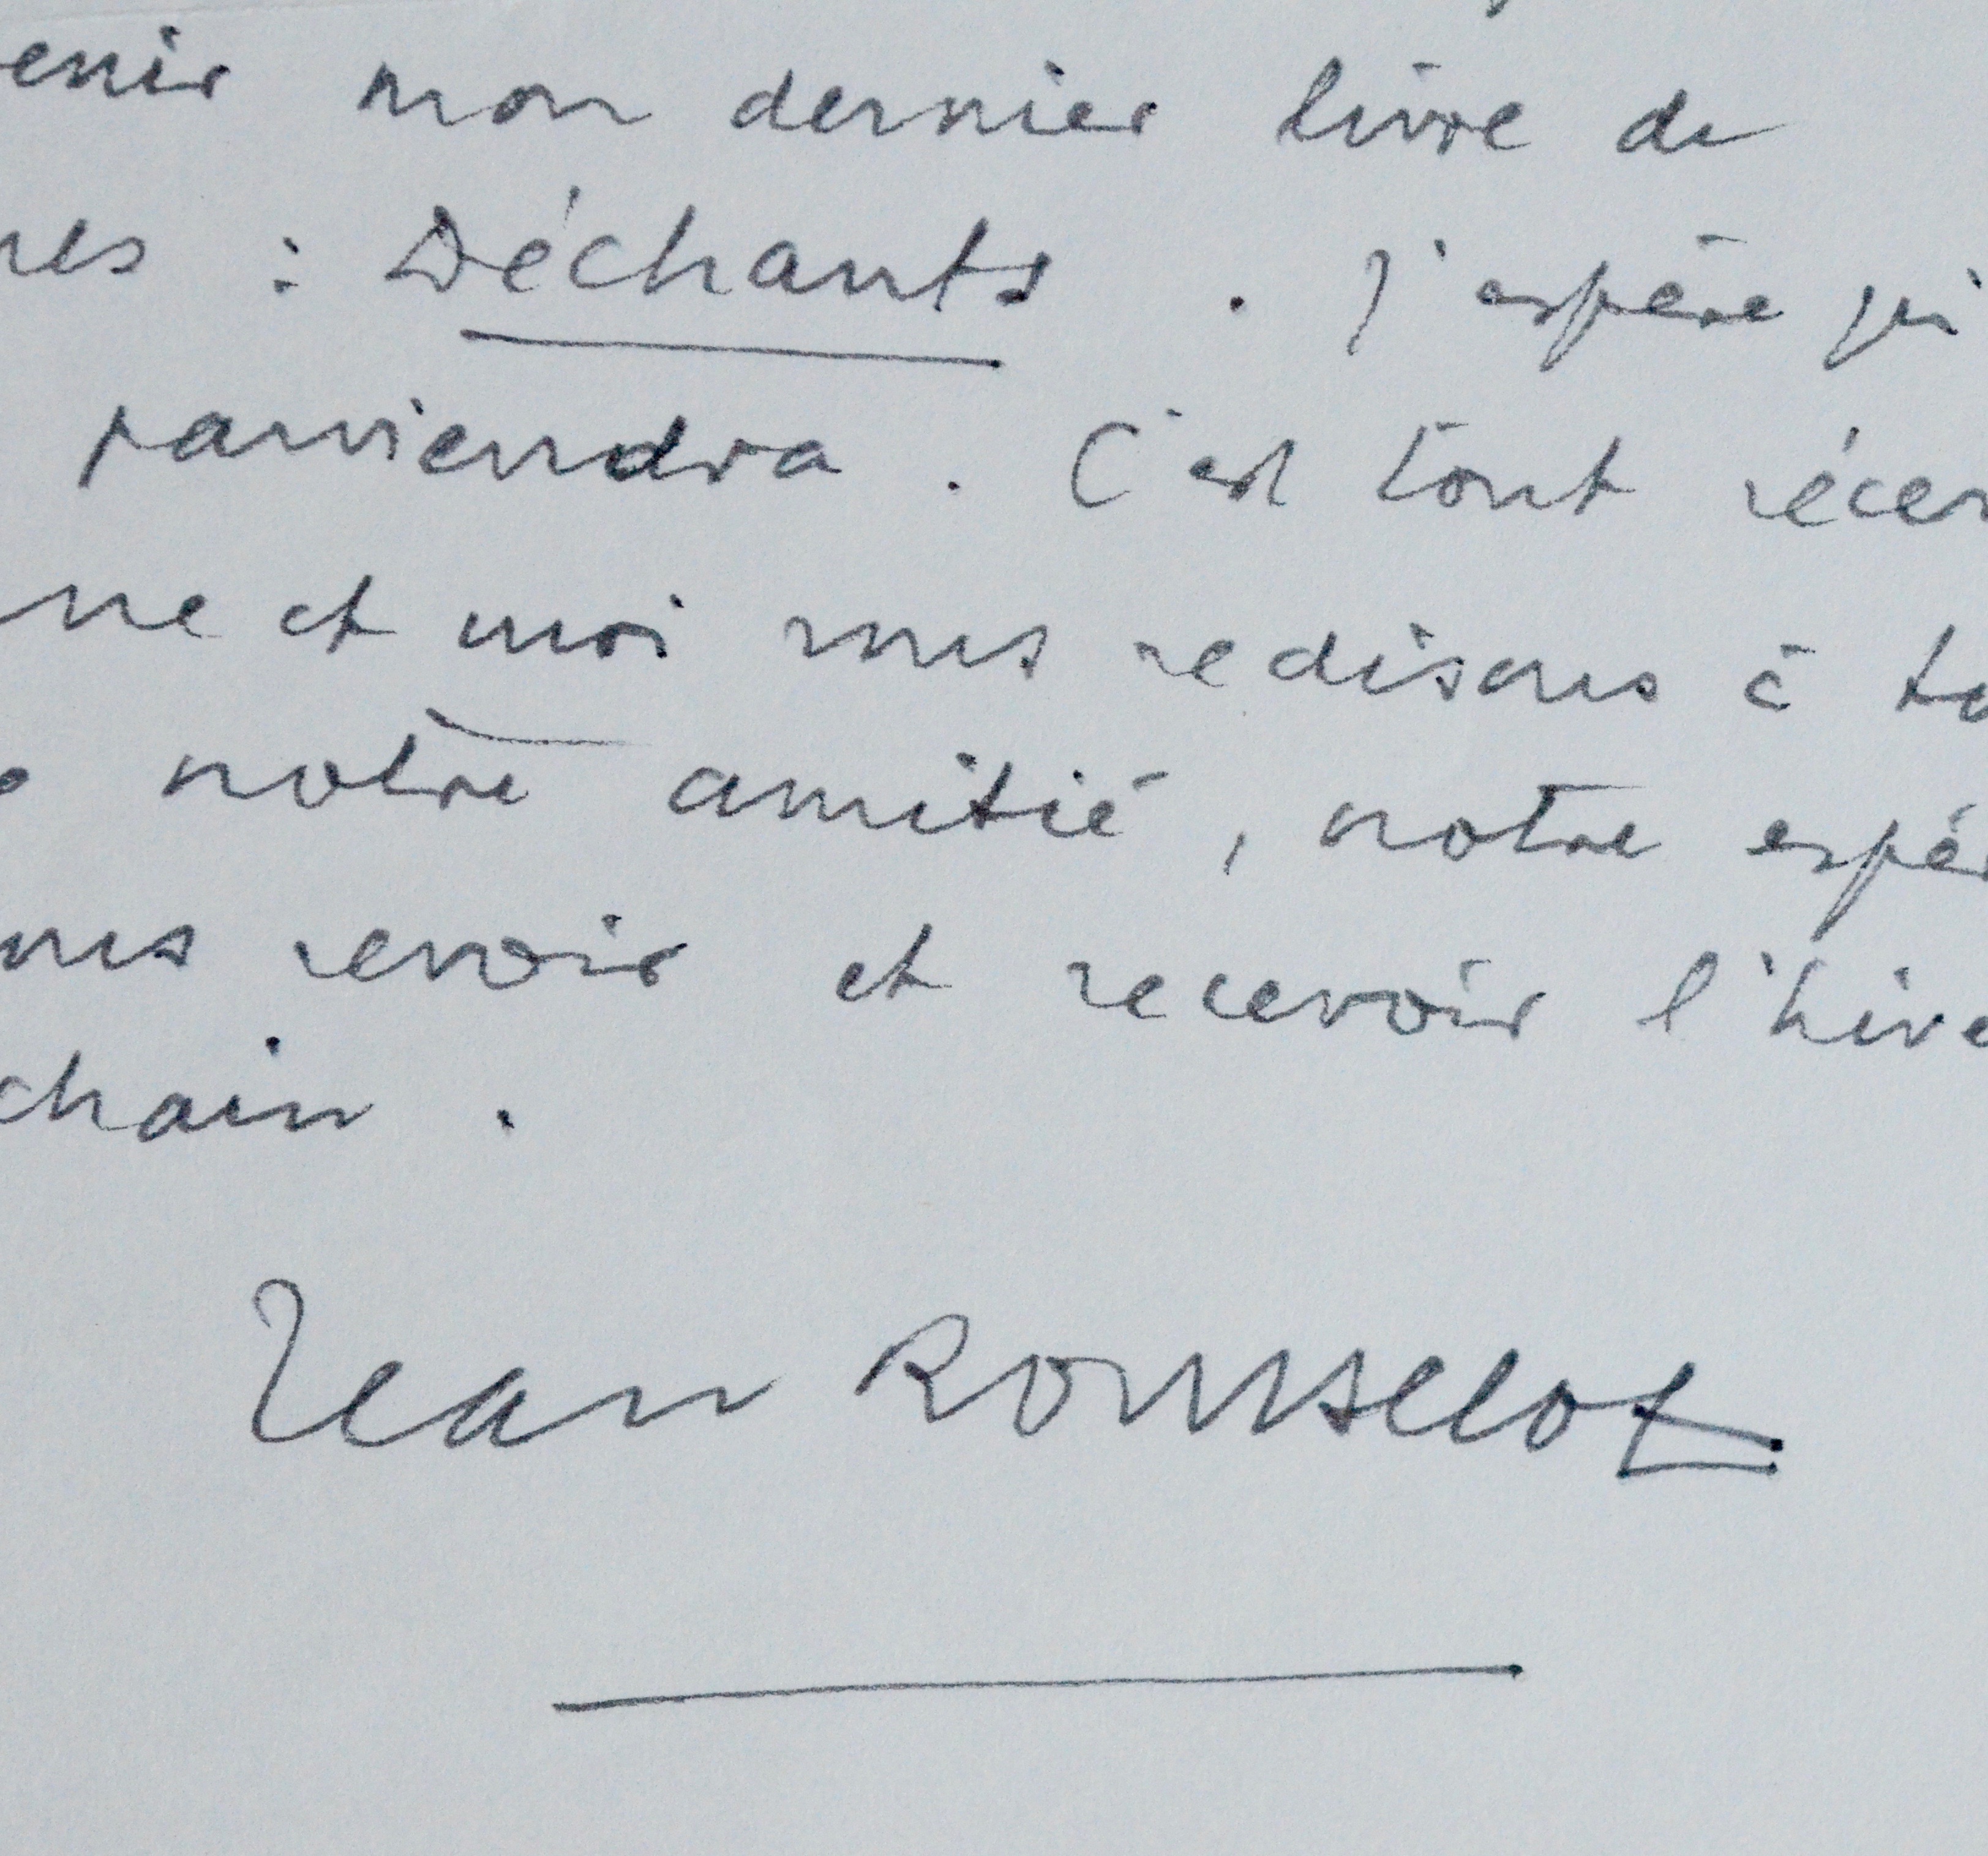 enir mon dernier livre de
mes : Déchants . J'espère qu'i
parviendra . C'est tout récen
ne et moi nous redisons à to
notre amitié, notre espér
ous revoir et recevoir l'hive
chain .
Jean Rousselot